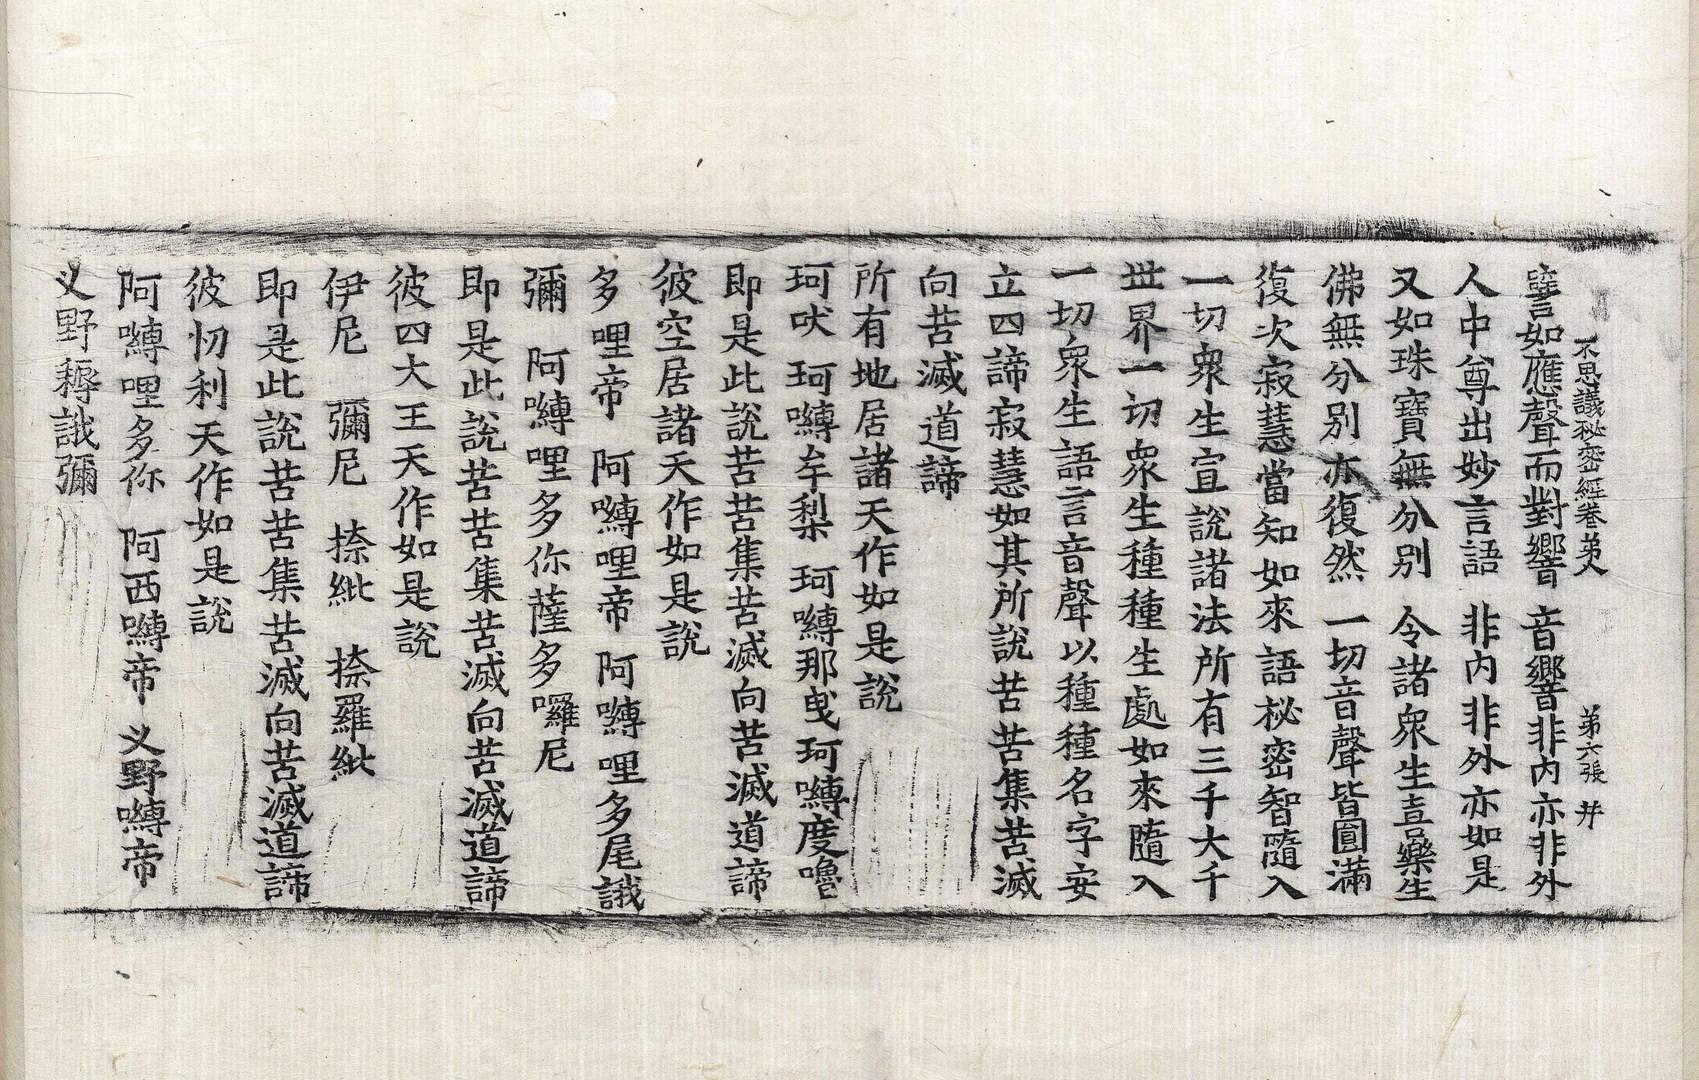 不思議秘密經卷第八 第六張 井
譬如應聲而對響 音響非內亦非外
人中尊出妙言語 非內非外亦如是
又如珠寶無分別 令諸衆生喜樂生
佛無分別亦復然 一切音聲皆圓滿
復次寂慧當知如來語秘密智隨入
一切衆生宣說諸法所有三千大千
世界一切衆生種種生處如來隨入
一切衆生語言音聲以種種名字安
立四諦寂慧如其所說苦苦集苦滅
向苦滅道諦
所有地居諸天作如是說
珂吠 珂嚩牟梨 珂嚩那曵珂嚩度嚕
即是此說苦苦集苦滅向苦滅道諦
彼空居諸天作如是說
多哩帝 阿嚩哩帝 阿嚩哩多尾誐
彌 阿嚩哩多你薩多囉尼
即是此說苦苦集苦滅向苦滅道諦
彼四大王天作如是說
伊尼 彌尼 捺紕 捺羅紕
即是此說苦苦集苦滅向苦滅道諦
彼忉利天作如是說
阿嚩哩多你 阿西嚩帝 义野嚩帝
义野耨誐彌